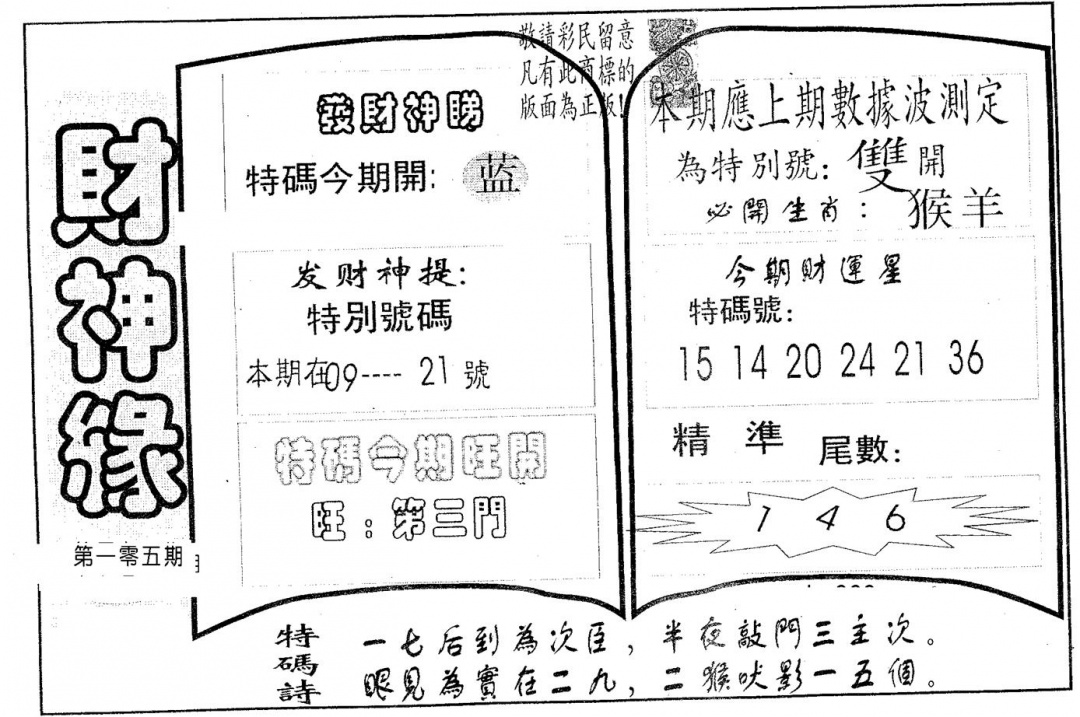 財神緣
第一零五期
敬請彩民留意
凡有此商標的
版面為正版!
發財神睇
特碼今期開: 蓝
发财神提:
特別號碼
本期在09---- 21 號
特碼今期旺開
旺:第三門
本期應上期數據波測定
為特別號: 雙開
必開生肖: 猴羊
今期財運星
特碼號:
15 14 20 24 21 36
精準 尾數:
1 4 6
特碼詩
一七后到為次臣,半夜敲門三主次。
眼見為實在二九,二猴吠影一五個。